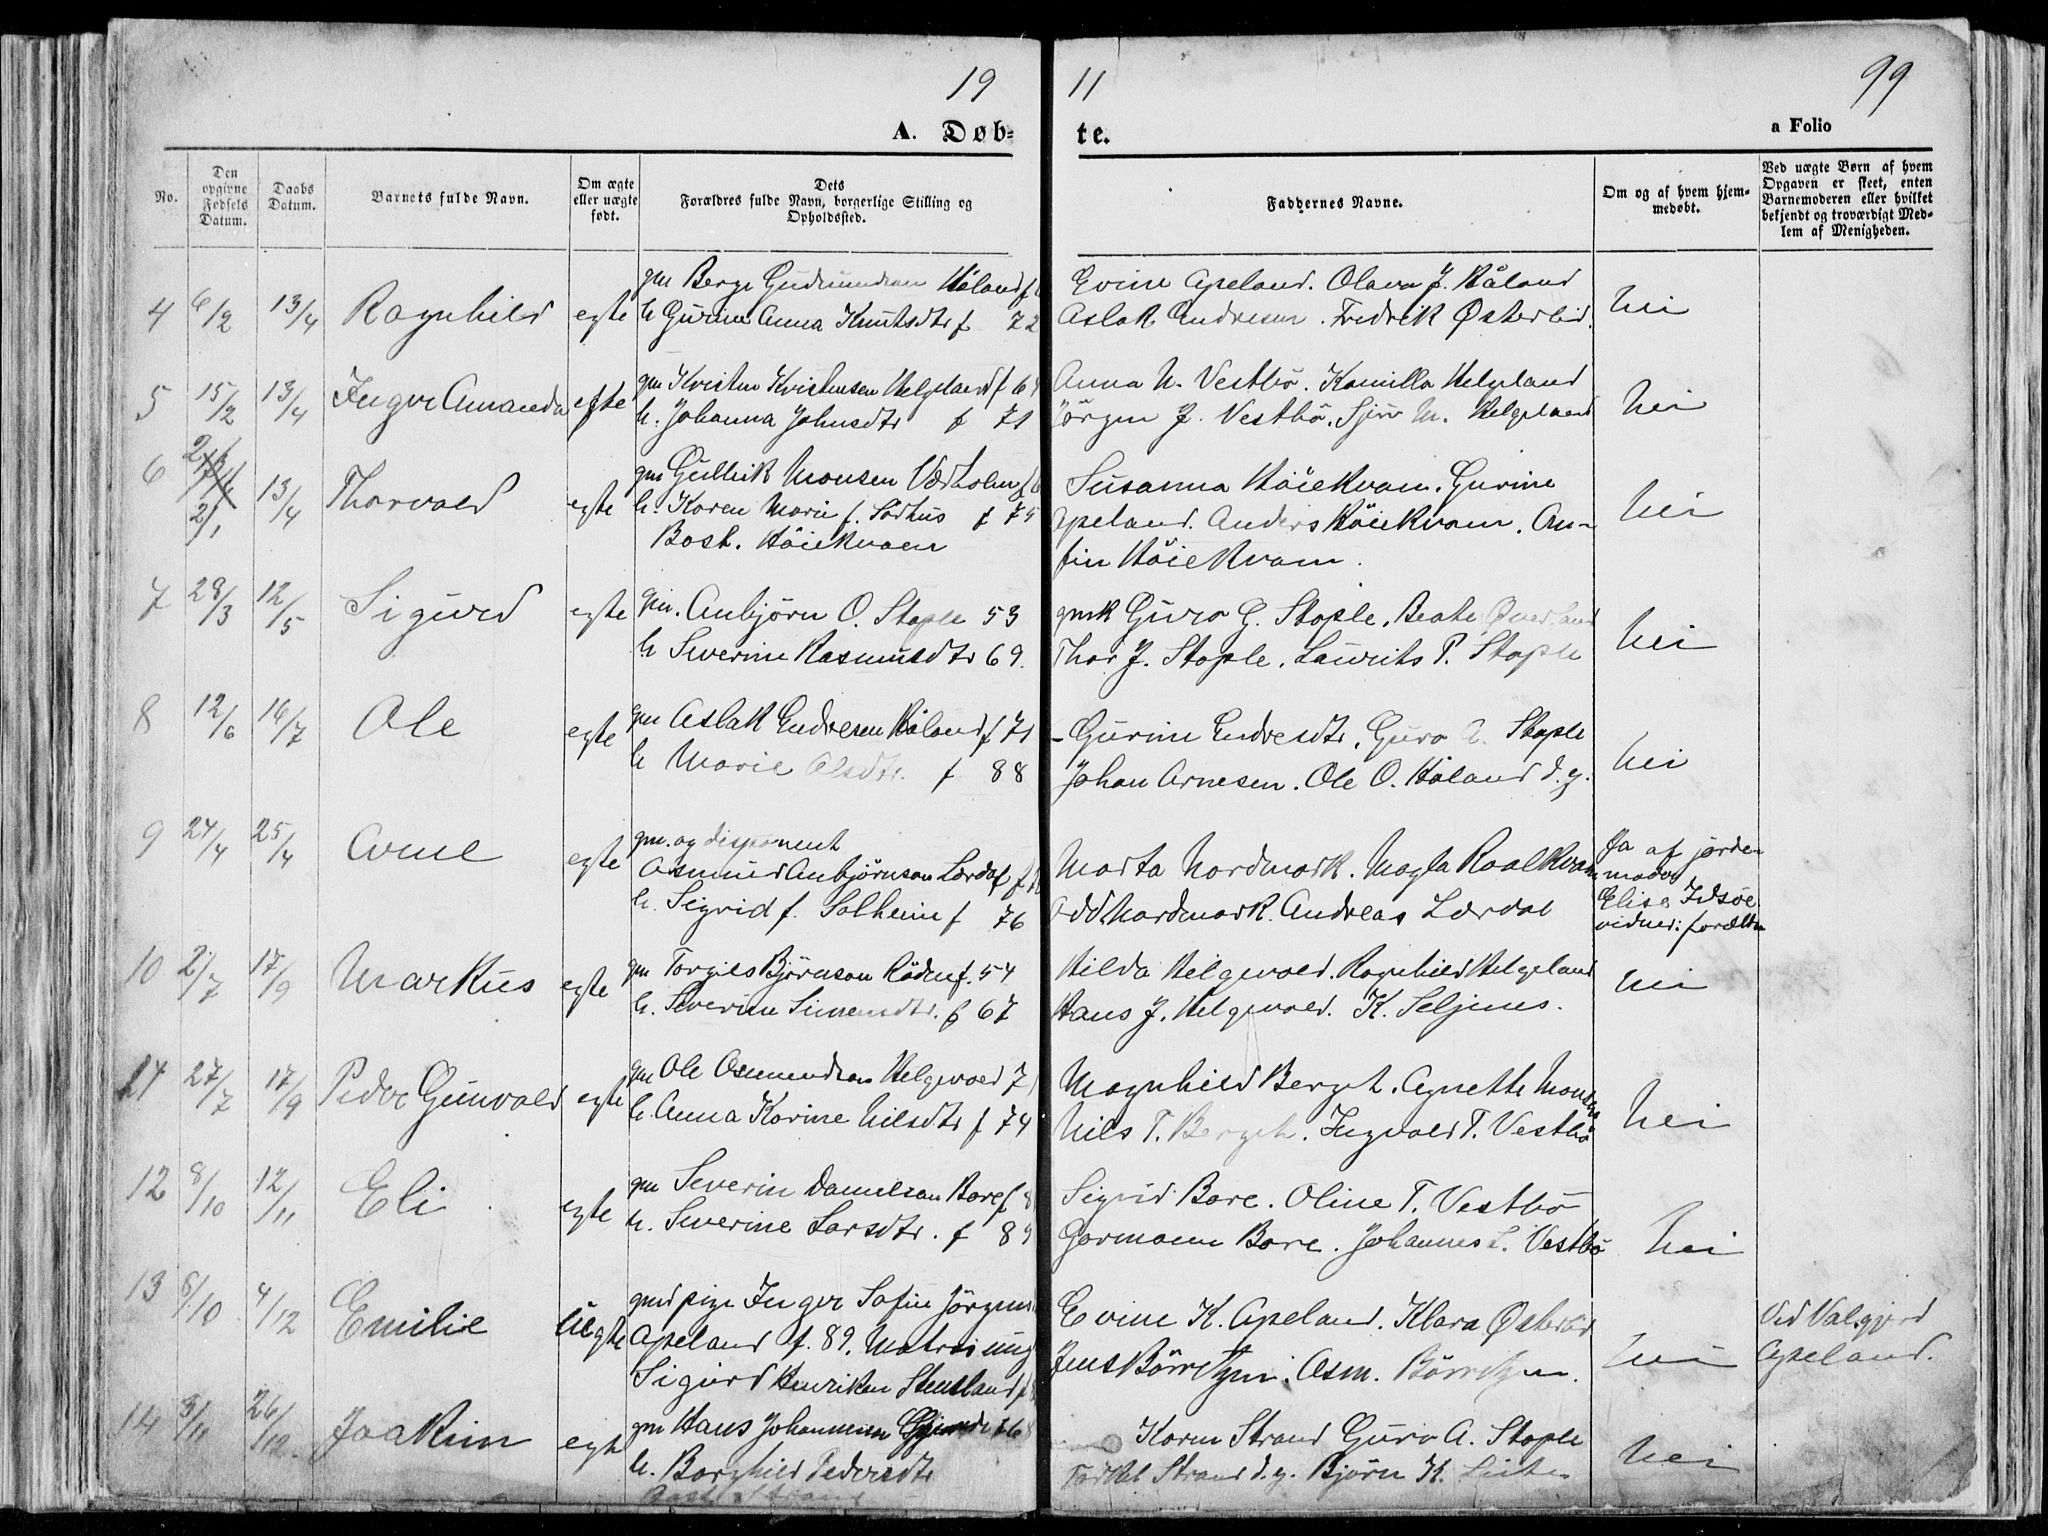 19 11 99
A. Døb- te. a Folio
No.
Den opgivne Fødsels Datum.
Daabs Datum.
Barnets fulde Navn.
Om ægte eller uægte født.
Dets
Forældres fulde Navn, borgerlige Stilling og
Opholdssted.
Faddernes Navne.
Om og af hvem hjem-
medøbt.
Ved uægte Børn af hvem
Opgaven er skeet, enten
Barnemoderen eller hvilket
bekjendt og troværdigt Med-
lem af Menigheden.
4 6/2 13/4 Ragnhild egte
gm Berge Gudmundsen Håland f
h Gurine Anna Knutsdtr f 72
Evine Apeland. Olava J. Håland
Aslak Endresen. Fredrik Østerlid.
nei
5 15/2 13/4 Inger Amanda egte
gm Kristen Kristensen Helgeland f 6
h. Johanna Johnsdtr f 71
Anna N. Vestbö. Kamilla Helgeland
Jörgen J. Vestbö. Sjur M. Helgeland
nei
6 2/1 13/4 Thorvald egte
gm Gullik Monsen Vadholm f
h. Karen Marie f. Sørhus f 75
Bosh. Höiekvam
Susanna Höiekvam. Gurine
Apeland. Anders Höiekvam. An-
fin Höiekvam.
nei
7 28/3 12/5 Sigurd egte
gm. Anbjörn O. Stople 53
h Severine Rasmusdtr 69.
gmk Guro G. Stople. Beate Øverland
Thor J. Stople. Laurits P. Stople
nei
8 12/6 16/7 Ole egte
gm Aslak Endresen Håland f 71
h Marie Olsdtr. f 88
- Gurine Endresdtr. Guro A. Stople
Johan Arnesen. Ole O. Håland d. y.
nei
9 24/4 25/4 Arne egte
gm. og disponent
Asmund Anbjörnson Lærdal f
h. Sigrid f. Solheim f 76
Marta Nordmark. Magla Roalkvam
Odd Nordmark. Andreas Lærdal
Ja af jorde-
moder
Elise Idsøe
vidner: forældre
10 2/7 17/9 Markus egte
gm Torgils Björnson f. 54
h. Severine Simensdtr. f 67
Hilda Helgevold. Ragnhild Helgeland
Hans J. Helgevold. K. Seljenes.
nei
11 27/7 17/9 Peder Gunvald egte
gm Ole Osmundsen Helgevold 7
h Anna Karine Nilsdtr f 74
Magnhild Bergeh. Agnethe Monsen
Nils T. Bergeh. Ingvald T. Vestbö
nei
12 8/10 12/11 Eli egte
gm Severin Danielsen Bore f 8
h. Severine Larsdtr. f 89
Sigrid Bore. Oline T. Vestbö
Gormann Bore. Johannes L. Vestbö
nei
13 6/10 4/12 Emilie uegte
pige Inger Sofie Jörgens
Apeland f. 89. Matros ung
Sigurd Henriksen Stensland f
Evine K. Apeland. Klara Østerlid
Jens Börretzen. Asm. Börretzen.
nei
Ved Valgjerd
Apeland.
14 3/11 26/12. Joakim egte
gm Hans Johannesen f 6
h. Borghild Pedersdtr
Karen Strand Guro A. Stople
Torkel Strand d. y. Björn H.
nei